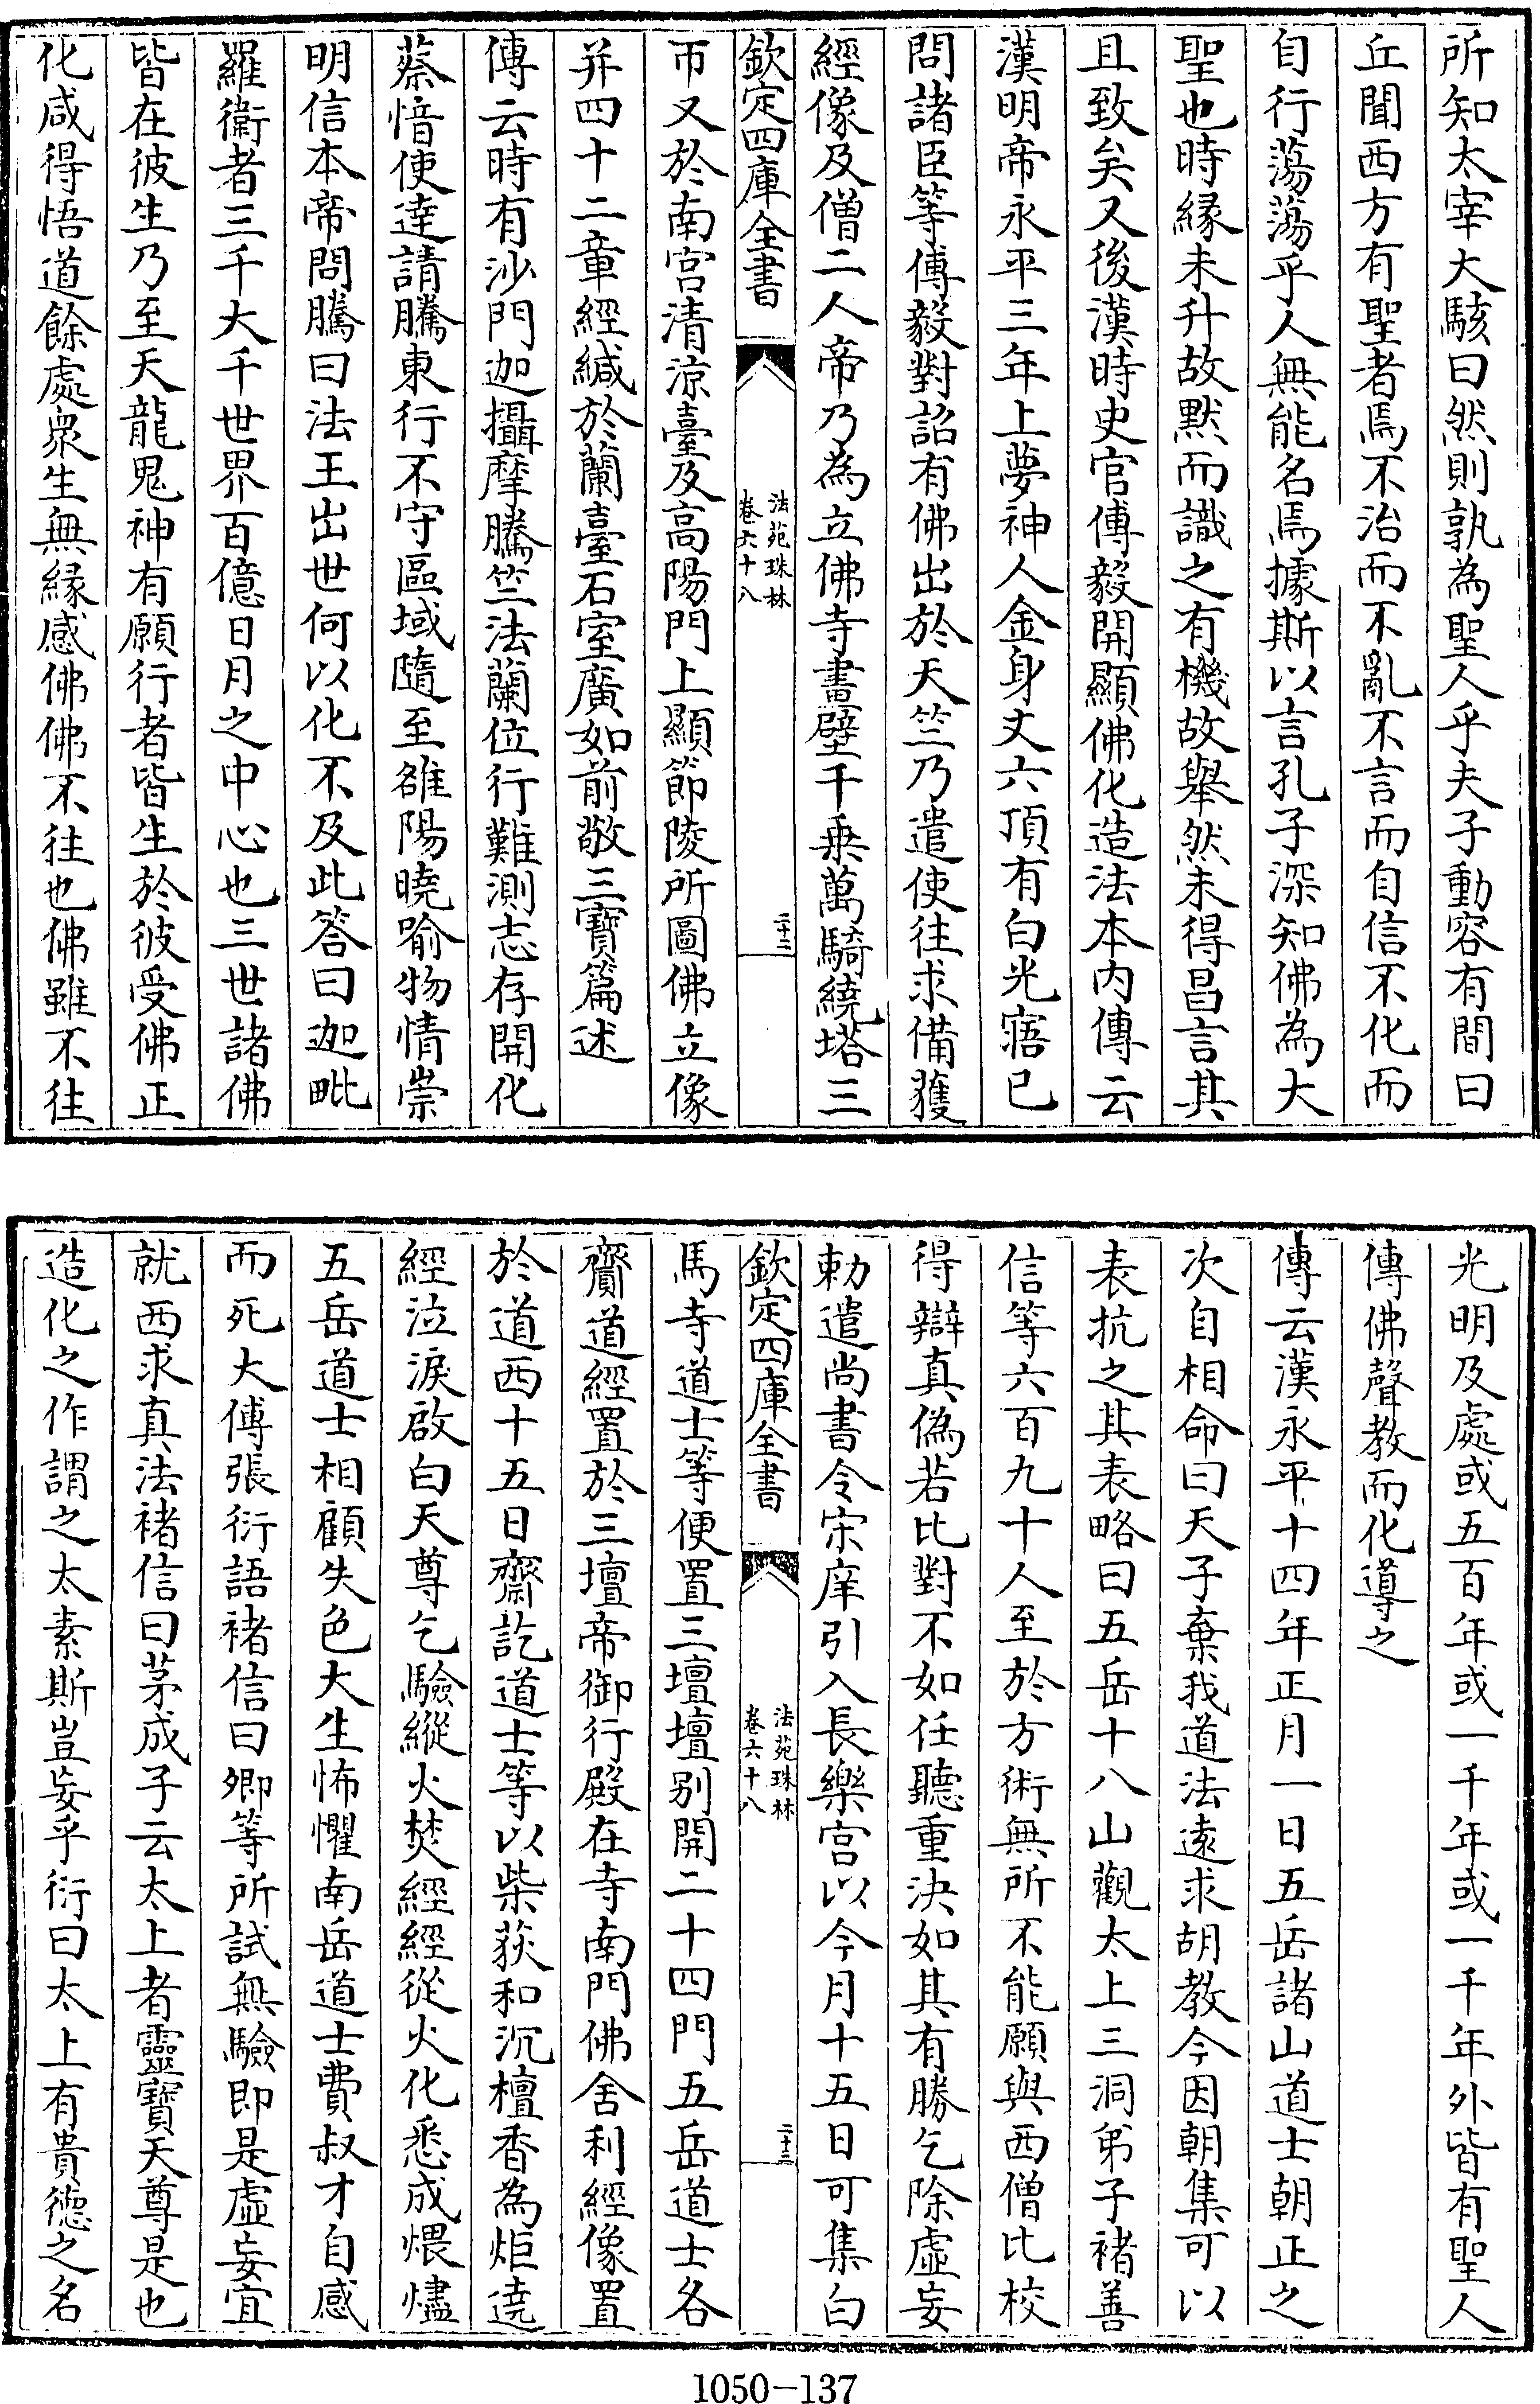 所知太宰大駭曰然則孰為聖人乎夫子動容有間曰
丘聞西方有聖者焉不治而不亂不言而自信不化而
自行蕩蕩乎人無能名焉據斯以言孔子深知佛為大
聖也時緣未升故默而識之有機故舉然未得昌言其
且致矣又後漢時史官傅毅開顯佛化造法本內傳云
漢明帝永平三年上夢神人金身丈六頂有白光寤已
問諸臣等傅毅對詔有佛出於天竺乃遣使往求備獲
經像及僧二人帝乃為立佛寺畫壁千乗萬騎繞塔三
欽定四庫全書
法苑珠林
卷六十八
二十二
帀又於南宮清涼臺及高陽門上顯節陵所圖佛立像
并四十二章經緘於蘭臺石室廣如前敬三寶篇述
傳云時有沙門迦攝摩騰竺法蘭位行難測志存開化
蔡愔使達請騰東行不守區域隨至雒陽曉喻物情崇
明信本帝問騰曰法王出世何以化不及此答曰迦毗
羅衞者三千大千世界百億日月之中心也三世諸佛
皆在彼生乃至天龍鬼神有願行者皆生於彼受佛正
化咸得悟道餘處衆生無緣感佛佛不往也佛雖不往
光明及處或五百年或一千年或一千年外皆有聖人
傳佛聲教而化導之
傳云漢永平十四年正月一日五岳諸山道士朝正之
次自相命曰天子棄我道法遠求胡教今因朝集可以
表抗之其表略曰五岳十八山觀太上三洞弟子褚善
信等六百九十人至於方術無所不能願與西僧比校
得辯真偽若比對不如任聽重決如其有勝乞除虛妄
勅遣尚書令宋庠引入長樂宮以今月十五日可集白
欽定四庫全書
法苑珠林
卷六十八
二十三
馬寺道士等便置三壇壇別開二十四門五岳道士各
齎道經置於三壇帝御行殿在寺南門佛舍利經像置
於道西十五日齋訖道士等以柴荻和沉檀香為炬遶
經泣淚啟白天尊乞驗縱火焚經經從火化悉成煨燼
五岳道士相顧失色大生怖懼南岳道士費叔才自感
而死大傅張衍語褚信曰卿等所試無驗即是虛妄宜
就西求真法褚信曰茅成子云太上者靈寶天尊是也
造化之作謂之太素斯豈妄乎衍曰太上有貴德之名
1050-137